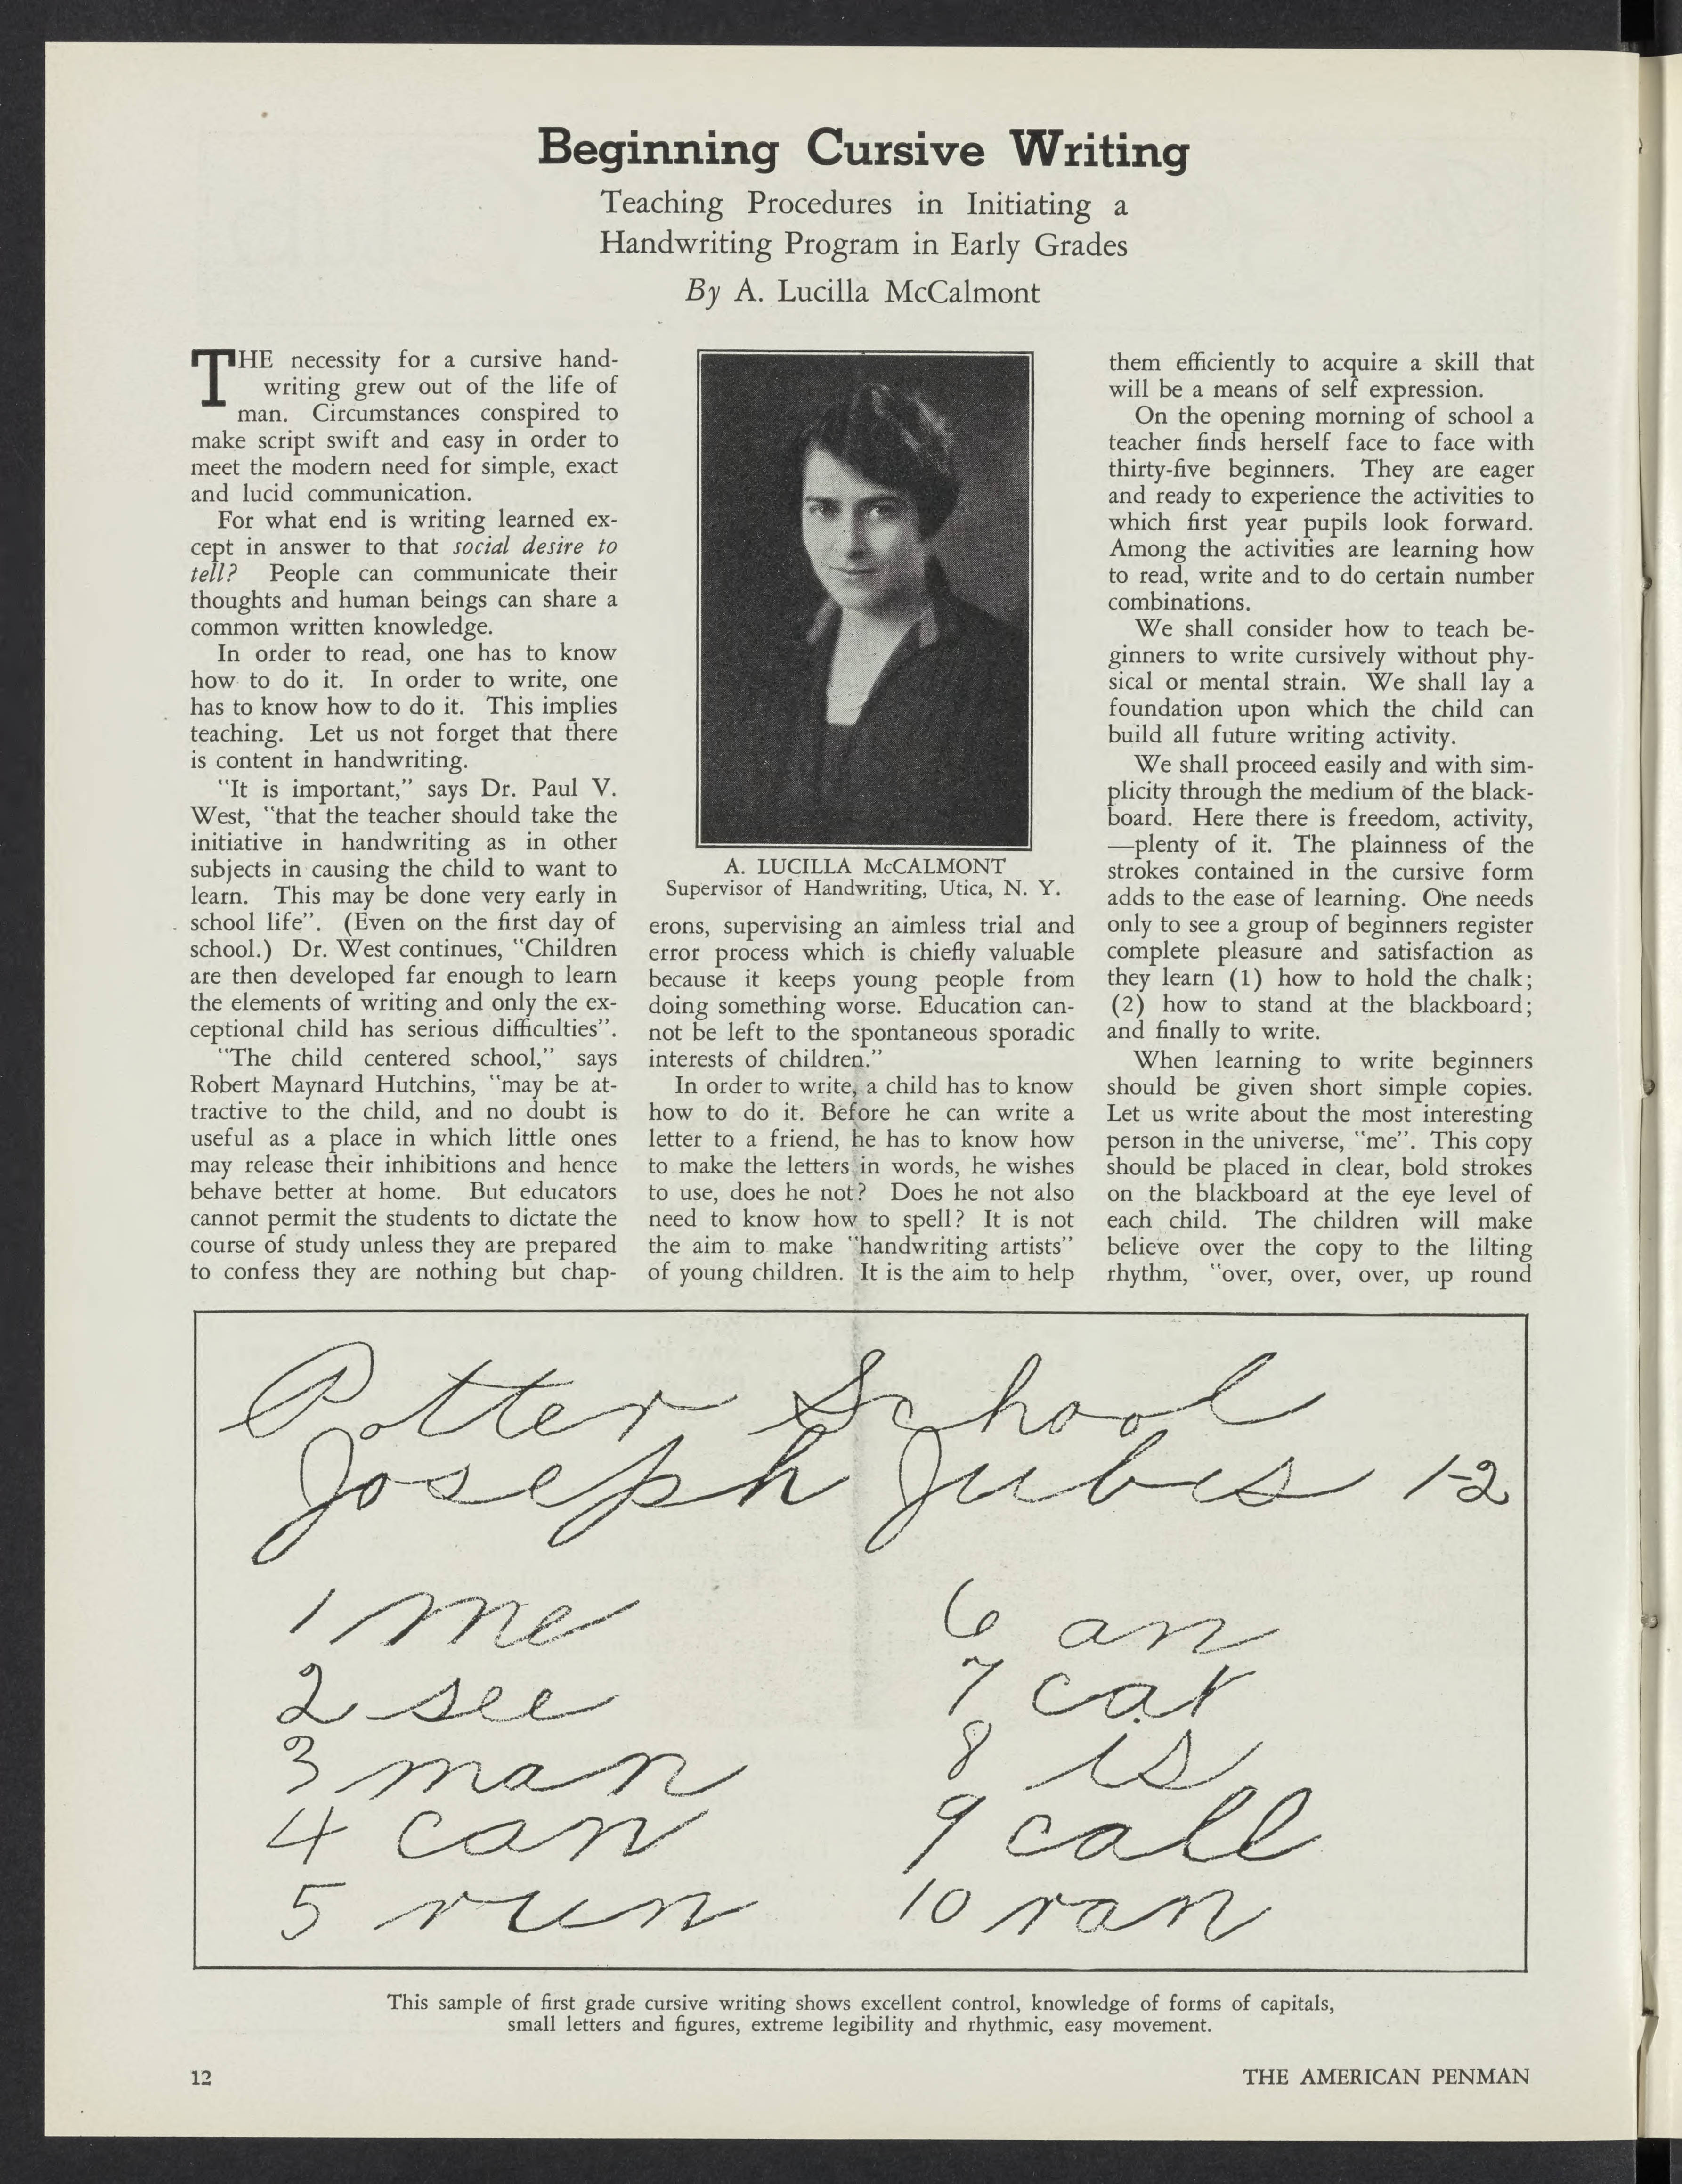 Beginning Cursive Writing
Teaching Procedures in Initiating a
Handwriting Program in Early Grades
By A. Lucilla McCalmont
THE necessity for a cursive hand-
writing grew out of the life of
man. Circumstances conspired to
make script swift and easy in order to
meet the modern need for simple, exact
and lucid communication.
For what end is writing learned ex-
cept in answer to that social desire to
tell? People can communicate their
thoughts and human beings can share a
common written knowledge.
In order to read, one has to know
how to do it. In order to write, one
has to know how to do it. This implies
teaching. Let us not forget that there
is content in handwriting.
"It is important," says Dr. Paul V.
West, "that the teacher should take the
initiative in handwriting as in other
subjects in causing the child to want to
learn. This may be done very early in
school life". (Even on the first day of
school.) Dr. West continues, "Children
are then developed far enough to learn
the elements of writing and only the ex-
ceptional child has serious difficulties".
"The child centered school," says
Robert Maynard Hutchins, "may be at-
tractive to the child, and no doubt is
useful as a place in which little ones
may release their inhibitions and hence
behave better at home. But educators
cannot permit the students to dictate the
course of study unless they are prepared
to confess they are nothing but chap-
A. LUCILLA McCALMONT
Supervisor of Handwriting, Utica, N. Y.
erons, supervising an aimless trial and
error process which is chiefly valuable
because it keeps young people from
doing something worse. Education can-
not be left to the spontaneous sporadic
interests of children."
In order to write, a child has to know
how to do it. Before he can write a
letter to a friend, he has to know how
to make the letters in words, he wishes
to use, does he not? Does he not also
need to know how to spell? It is not
the aim to make "handwriting artists"
of young children. It is the aim to help
them efficiently to acquire a skill that
will be a means of self expression.
On the opening morning of school a
teacher finds herself face to face with
thirty-five beginners. They are eager
and ready to experience the activities to
which first year pupils look forward.
Among the activities are learning how
to read, write and to do certain number
combinations.
We shall consider how to teach be-
ginners to write cursively without phy-
sical or mental strain. We shall lay a
foundation upon which the child can
build all future writing activity.
We shall proceed easily and with sim-
plicity through the medium of the black-
board. Here there is freedom, activity,
—plenty of it. The plainness of the
strokes contained in the cursive form
adds to the ease of learning. One needs
only to see a group of beginners register
complete pleasure and satisfaction as
they learn (1) how to hold the chalk;
(2) how to stand at the blackboard;
and finally to write.
When learning to write beginners
should be given short simple copies.
Let us write about the most interesting
person in the universe, "me". This copy
should be placed in clear, bold strokes
on the blackboard at the eye level of
each child. The children will make
believe over the copy to the lilting
rhythm, "over, over, over, up round
Potter School
Joseph Jubis 1-2
1 me
2 see
3 man
4 can
5 run
6 an
7 cat
8 is
9 call
10 ran
This sample of first grade cursive writing shows excellent control, knowledge of forms of capitals,
small letters and figures, extreme legibility and rhythmic, easy movement.
12
THE AMERICAN PENMAN